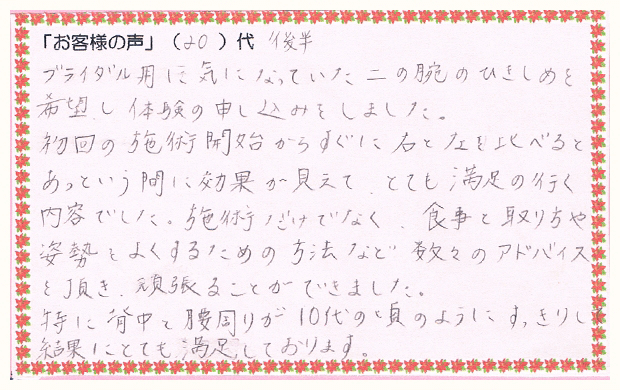 「お客様の声」（20）代 後半
ブライダル用に気になっていた二の腕のひきしめを
希望し体験の申し込みをしました。
初回の施術開始からすぐに右と左を比べると
あっという間に効果が見えて、とても満足の行く
内容でした。施術だけでなく、食事と取り方や
姿勢をよくするための方法など数々のアドバイス
を頂き、頑張ることができました。
特に背中と腰周りが10代の頃のようにすっきりして
結果にとても満足しております。